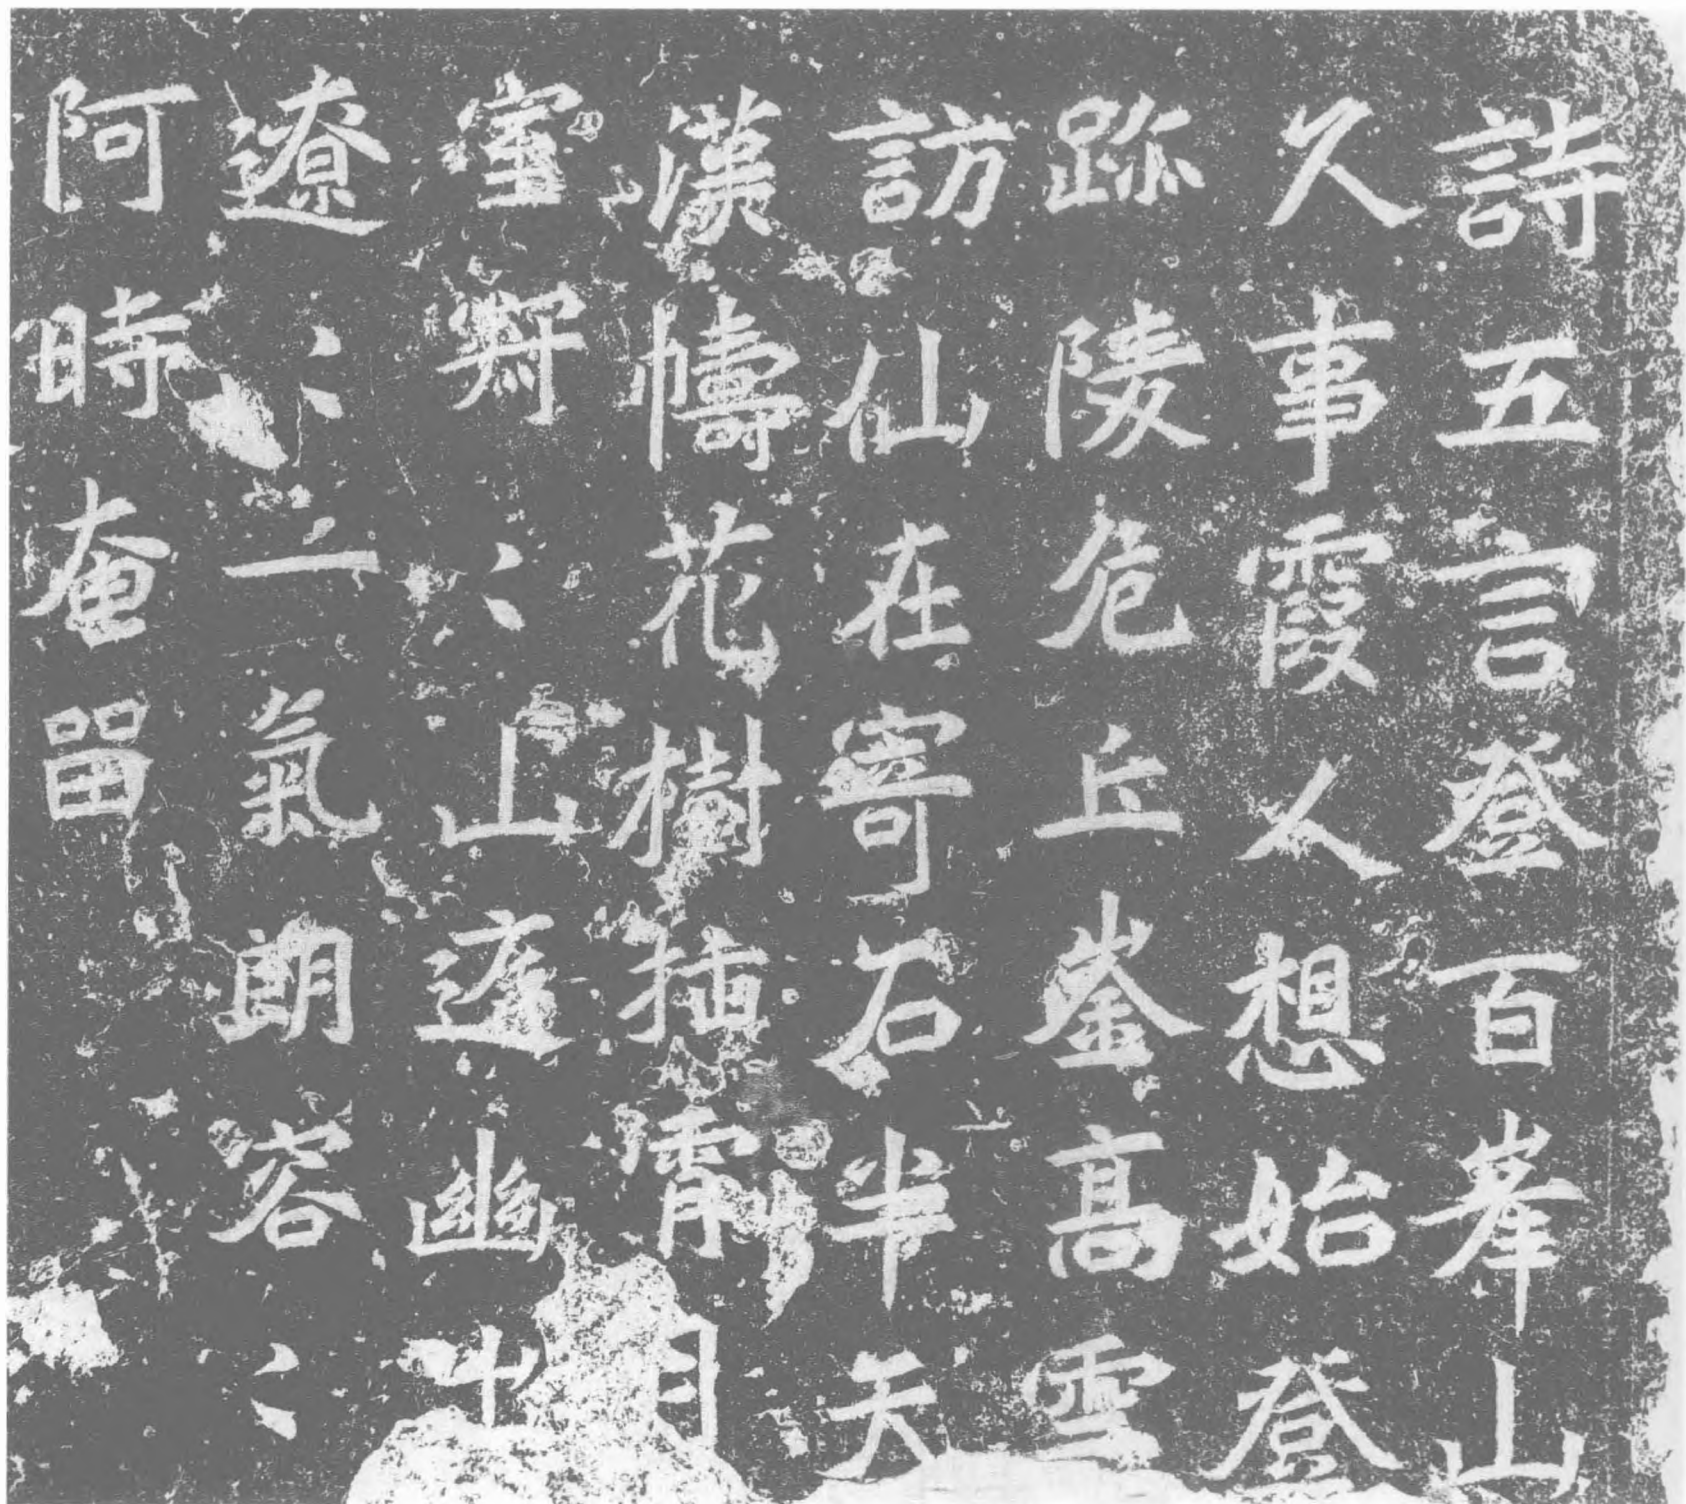 詩五言登百峯山
久事霞人想始登
跡陵危丘崟高雪
訪仙在寄石半天
漢幬花樹插霄月
室〻山幽
遼〻一氣朗容〻
阿時奄留